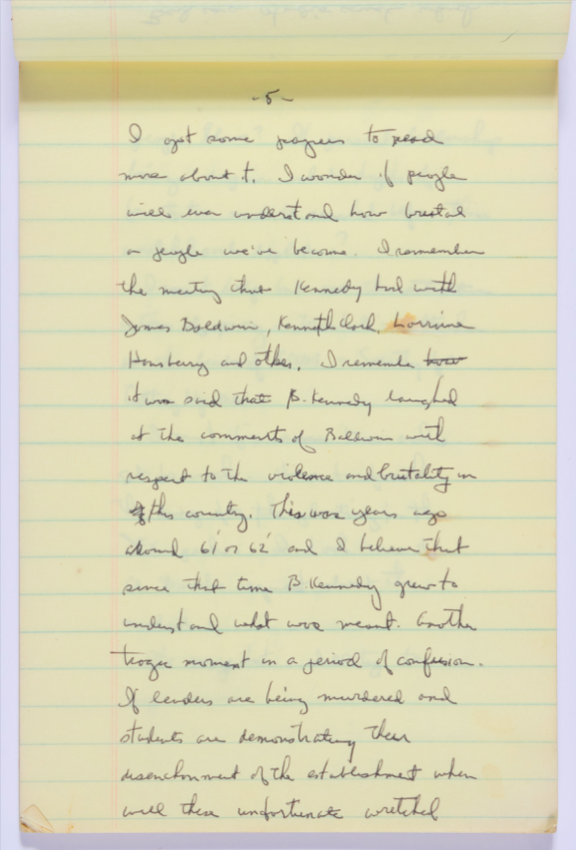 -5-
I got some papers to read
more about it. I wonder if people
will ever understand how brutal
a people we've become. I remember
the meeting that Kennedy had with
James Baldwin, Kenneth Clark, Lorraine
Hansberry and others. I remember how
it was said that B. Kennedy laughed
at the comments of Baldwin with
respect to the violence and brutality in
this country. This was years ago
around 61' or 62' and I believe that
since that time B. Kennedy grew to
understand what was meant. Another
tragic moment in a period of confusion.
If leaders are being murdered and
students are demonstrating their
disenchantment of the establishment when
will these unfortunate wretched